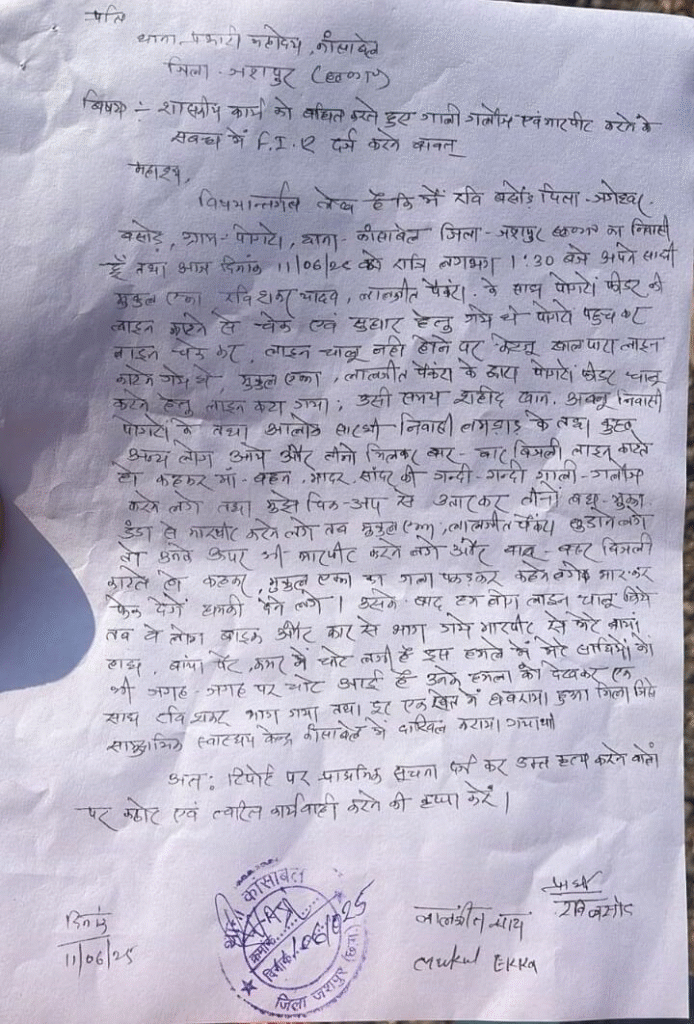 प्रति
थाना प्रभारी महोदय, काँसाबेल
जिला-जशपुर (छ०ग०)
विषय :- शासकीय कार्य को बाधित करते हुए गाली गलौज एवं मारपीट करने के
सबंध में F.I.R दर्ज करने बाबत्
महाशय,
विषयान्तर्गत लेख है कि मैं रवि बसोड़ पिता-
बसोड़, ग्राम-पोंगरो, थाना-काँसाबेल जिला-जशपुर छ०ग० का निवासी
हूँ तथा आज दिनांक 11/06/25 को रात्रि लगभग 1:30 बजे अपने साथी
मुकुल एक्का रविशंकर यादव, लालजीत पैंकरा के साथ पोंगरो फीडर की
लाइन काटने से चेक एवं सुधार हेतु गये थे पोंगरो पहुच कर
लाइन चेक कर, लाइन चालू नही होने पर लाइन
काटने गये थे, मुकुल एक्का, लालजीत पैंकरा के द्वारा पोंगरो फीडर चालू
करने हेतु लाइन काटा गया, उसी समय शहीद खान, निवासी
पोंगरो के तथा आलोक सारथी निवासी के तथा कुछ
अन्य लोग आये और तीनो मिलकर बार-बार बिजली लाइन काटते
हो कहकर माँ-बहन, मादर, की गन्दी-गन्दी गाली-गलौज
करने लगे तथा मुझे पिक-अप से उतारकर तीनो मुक्का
डंडा से मारपीट करने लगे तब मुकुल एक्का, लालजीत पैंकरा छुडाने लगे
तो उनके ऊपर भी मारपीट करने लगे और बार-बार बिजली
काटते हो कहकर, मुकुल एक्का का गला पकड़कर कहने लगे मारकर
फेक देगें धमकी देने लगे। उसके बाद हम लोग लाइन चालू किये
तब वे लोग बाइक और कार से भाग गये मारपीट से मेरे बायां
हाथ, बायां पैर, कमर में चोट लगी है इस हमले में मेरे साथियों को
भी जगह-जगह पर चोट आई है उनके हमला को देखकर एक
साथ रविशंकर भाग गया तथा दूर एक खेत में घबराया हुआ मिला जिसे
सामुदायिक स्वास्थ्य केन्द्र काँसाबेल में दाखिल कराया गया था
अतः रिपोर्ट पर प्राथमिक सूचना दर्ज कर उक्त करने वालो
पर कठोर एवं त्वरित कार्यवाही करने की कृपा करें।
दिनांक
11/06/25
थाना कांसाबेल
क्रमांक
दिनांक 11/06/25
जिला जशपुर (छ.ग.)
लालजीत साय
Mukul EKKa
प्रार्थी
रवि बसोड़